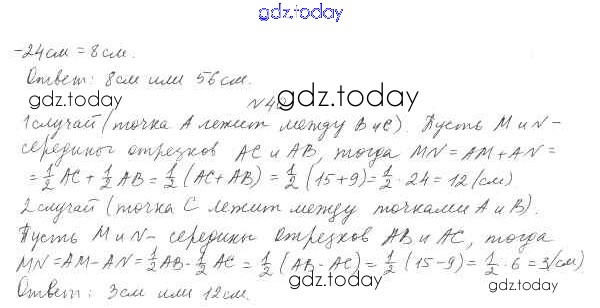 gdz.today
-24см = 8см.
Ответ: 8см или 56см.
gdz.today
gdz.today
1 случай (точка А лежит между В и С). Пусть M и N -
середины отрезков AC и AB, тогда MN = AM + AN =
= 1/2 AC + 1/2 AB = 1/2 (AC + AB) = 1/2 (15 + 9) = 1/2 · 24 = 12 (см)
2 случай (точка С лежит между точками А и В).
gdz.today
gdz.today
Пусть M и N - середины отрезков AB и AC, тогда
MN = AM - AN = 1/2 AB - 1/2 AC = 1/2 (AB - AC) = 1/2 (15 - 9) = 1/2 · 6 = 3 (см)
Ответ: 3см или 12см.
gdz.today